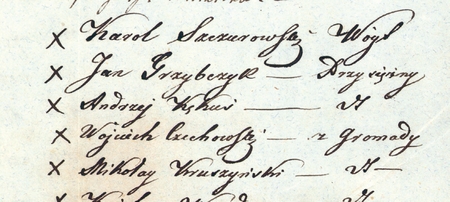 x Karol Szczurowski Wóyt
x Jan Grzybczyk — Przysiężny
x Andrzej Kękuś — dt
x Woyciech Czechowski — z Gromady
x Mikołay Kruszyński — dt —
x